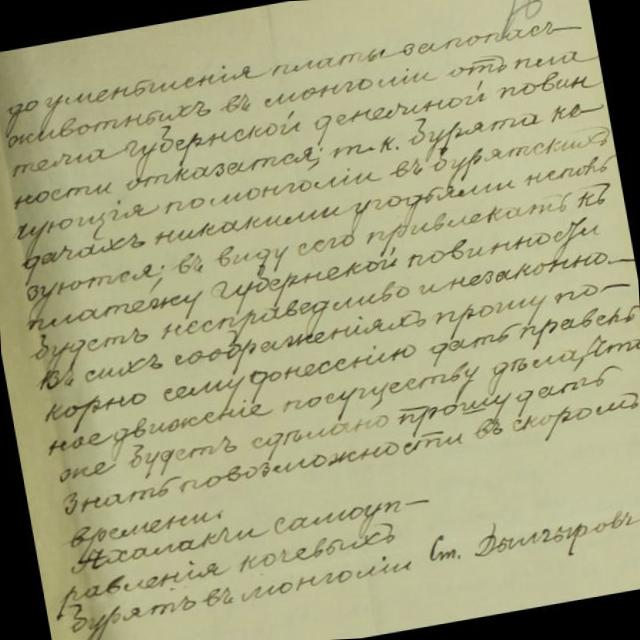 до ументшенія платы запопасъ
животныхъ въ монголіи отъ пла
тежа губернской денежной повин
ности отказатся, т.к. бурята ко
чующія помонголіи въ бурятскихъ
дачахъ никакими угодьями непользу
зуются; въ виду сего привлекать къ
платежу губернской повинности
будетъ несправедливо и незаконно.
Въ сихъ соображеніяхъ прошу по-
корно сему донесенію дать правель
ное движеніе посуществу дѣла, Что
же будетъ сдѣлано прошу дать
знать повозможности въ скоромъ
времени.
Ахалакчи самоуп-
равленія кочевыхъ
Бурятъ въ монголіи Ст. Дылчыровъ